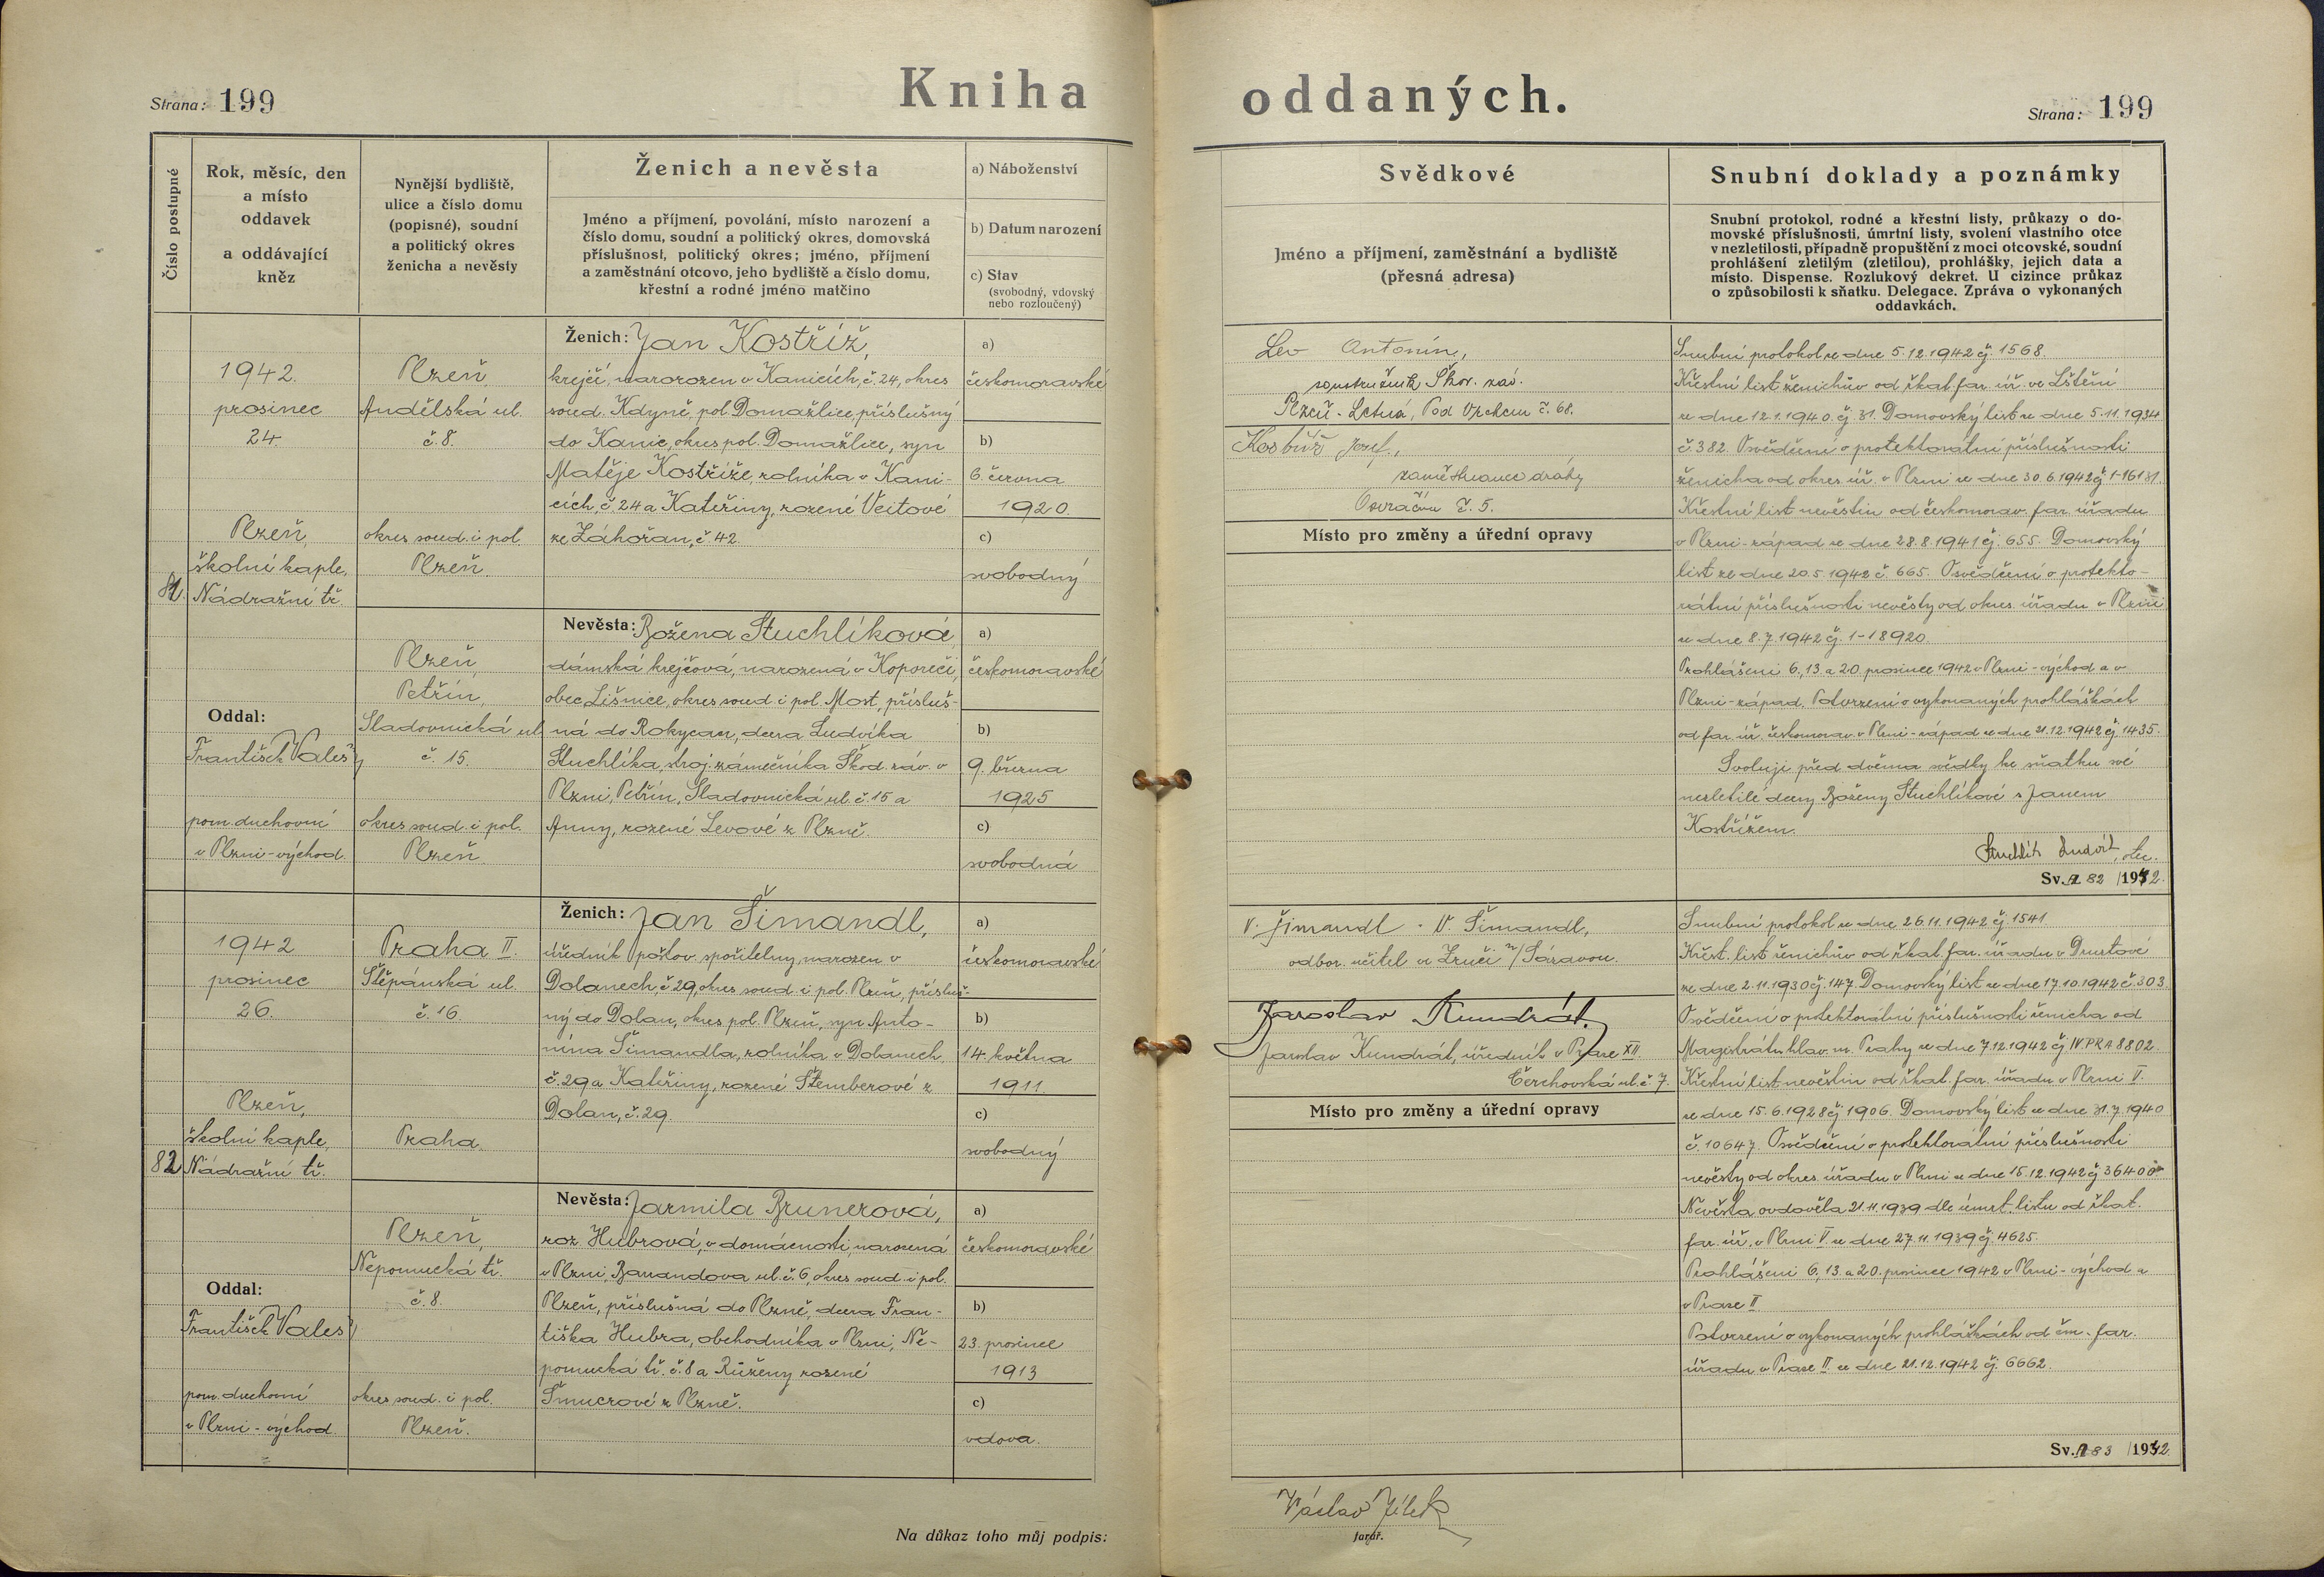 Strana: 199
Kniha
oddaných.
Strana: 199
Číslo postupné
Rok, měsíc, den
a místo
oddavek
a oddávající
kněz
Nynější bydliště,
ulice a číslo domu
(popisné), soudní
a politický okres
ženicha a nevěsty
Ženich a nevěsta
Jméno a příjmení, povolání, místo narození a
číslo domu, soudní a politický okres, domovská
příslušnost, politický okres; jméno, příjmení
a zaměstnání otcovo, jeho bydliště a číslo domu,
křestní a rodné jméno matčino
a) Náboženství
b) Datum narození
c) Stav
(svobodný, vdovský
nebo rozloučený)
Svědkové
Jméno a příjmení, zaměstnání a bydliště
(přesná adresa)
Snubní doklady a poznámky
Snubní protokol, rodné a křestní listy, průkazy o do-
movské příslušnosti, úmrtní listy, svolení vlastního otce
v nezletilosti, případně propuštění z moci otcovské, soudní
prohlášení zletilým (zletilou), prohlášky, jejich data a
místo. Dispense. Rozlukový dekret. U cizince průkaz
o způsobilosti k sňatku. Delegace. Zpráva o vykonaných
oddavkách.
81.
1942.
prosinec
24.
Plzeň,
školní kaple,
Nádražní tř.
Oddal:
František Valeš
pom. duchovní
v Plzni-východ.
Plzeň
Andělská ul.
č. 8.
okres soud. i pol.
Plzeň.
Ženich: Jan Kostříž,
krejčí, narozen v Kanicích, č. 24, okres
soud. Kdyně, pol. Domažlice, příslušný
do Kanic, okres pol. Domažlice, syn
Matěje Kostříže, rolníka v Kani-
cích, č. 24 a Kateřiny, rozené Veitové
ze Záhořan, č. 42.
a)
českomoravské
b)
6. června
1920.
c)
svobodný
Plzeň,
Petřín,
Sladovnická ul.
č. 15.
okres soud. i pol.
Plzeň
Nevěsta: Božena Stuchlíková,
dámská krejčová, narozená v Koporeči,
obec Lišnice, okres soud i pol. Most, přísluš-
ná do Rokycan, dcera Ludvíka
Stuchlíka, stroj. zámečníka Škod. záv. v
Plzni, Petřín, Sladovnická ul. č. 15 a
Anny, rozené Levové z Plzně.
a)
českomoravské
b)
9. března
1925
c)
svobodná
Lev Antonín,
soustružník Škod. záv.
Plzeň - Letná, Pod Vrchem č. 68.
Kostříž Josef,
zaměstnanec dráhy
Osvračín č. 5.
Místo pro změny a úřední opravy
Snubní protokol ze dne 5.12.1942 čj. 1568.
Křestní list ženichův od řkat. far. úř. ve Lštění
ze dne 12.1.1940 čj. 31. Domovský list ze dne 5.11.1934
č. 382. Osvědčení o protektorátní příslušnosti
ženicha od okres. úř. v Plzni ze dne 30.6.1942 čj. 1-16131.
Křestní list nevěstin od českomorav. far. úřadu
v Plzni-západ ze dne 28.8.1941 čj. 655. Domovský
list ze dne 20.5.1942 č. 665. Osvědčení o protekto-
rátní příslušnosti nevěsty od okres. úřadu v Plzni
ze dne 8.7.1942 čj. 1-18920.
Prohlášeni 6., 13. a 20. prosince 1942 v Plzni-východ a v
Plzni-západ. Potvrzení o vykonaných prohláškách
od far. úř. českomorav. v Plzni-západ ze dne 21.12.1942 čj. 1435.
Svoluji před dvěma svědky ke sňatku své
nezletilé dcery Boženy Stuchlíkové s Janem
Kostřížem.
Stuchlík Ludvík, otec.
Sv. 82 /1942.
82
1942
prosinec
26.
Plzeň,
školní kaple,
Nádražní tř.
Oddal:
František Valeš
pom. duchovní
v Plzni - východ.
Praha II.
Štěpánská ul.
č. 16.
Praha.
Ženich: Jan Šimandl,
úředník poštov. spořitelny, narozen v
Dolanech, č. 29, okres soud. i pol. Plzeň, přísluš-
ný do Dolan, okres pol. Plzeň, syn Anto-
nína Šimandla, rolníka v Dolanech
č. 29 a Kateřiny, rozené Štemberové z
Dolan, č. 29.
a)
českomoravské
b)
14. května
1911.
c)
svobodný
Plzeň,
Nepomucká tř.
č. 8.
okres soud. i pol.
Plzeň.
Nevěsta: Jarmila Brunerová,
roz. Hubrová, v domácnosti, narozená
v Plzni, Barandova ul. č. 6, okres soud. i pol.
Plzeň, příslušná do Plzně, dcera Fran-
tiška Hubra, obchodníka v Plzni, Ne-
pomucká tř. č. 8 a Růženy rozené
z Plzně.
a)
českomoravské
b)
23. prosince
1913
c)
vdova.
V. Šimandl. V. Šimandl,
odbor. učitel ve Zruči n/Sázavou.
Jaroslav Kundrát
Jaroslav Kundrát, úředník v Praze XII.
Čerchovská ul. č. 7.
Místo pro změny a úřední opravy
Snubní protokol ze dne 26.11.1942 čj. 1541
Křest. list ženichův od řkat. far. úřadu v Druztové
ze dne 2.11.1930 čj. 147. Domovský list ze dne 17.10.1942 č. 303.
Osvědčení o protektorátní příslušnosti ženicha od
Magistrátu hlav. m. Prahy ze dne 7.12.1942 čj. IV.PRA 8802.
Křestní list nevěstin od řkat. far. úřadu v Plzni V.
ze dne 15.6.1928 čj. 1906. Domovský list ze dne 31.7.1940
č. 10647. Osvědčení o protektorátní příslušnosti
nevěsty od okres. úřadu v Plzni ze dne 15.12.1942 čj. 36400
Nevěsta ovdověla 21.11.1939 dle úmrt. listu od řkat.
far. úř. v Plzni V. ze dne 27.11.1939 čj. 4625.
Prohlášeni 6., 13. a 20. prosince 1942 v Plzni-východ a
v Praze II
Potvrzení o vykonaných prohláškách od čm. far.
úřadu v Praze II. ze dne 21.12.1942 čj. 6662.
Sv. 83 /1942.
Na důkaz toho můj podpis:
Václav Jílek
farář.